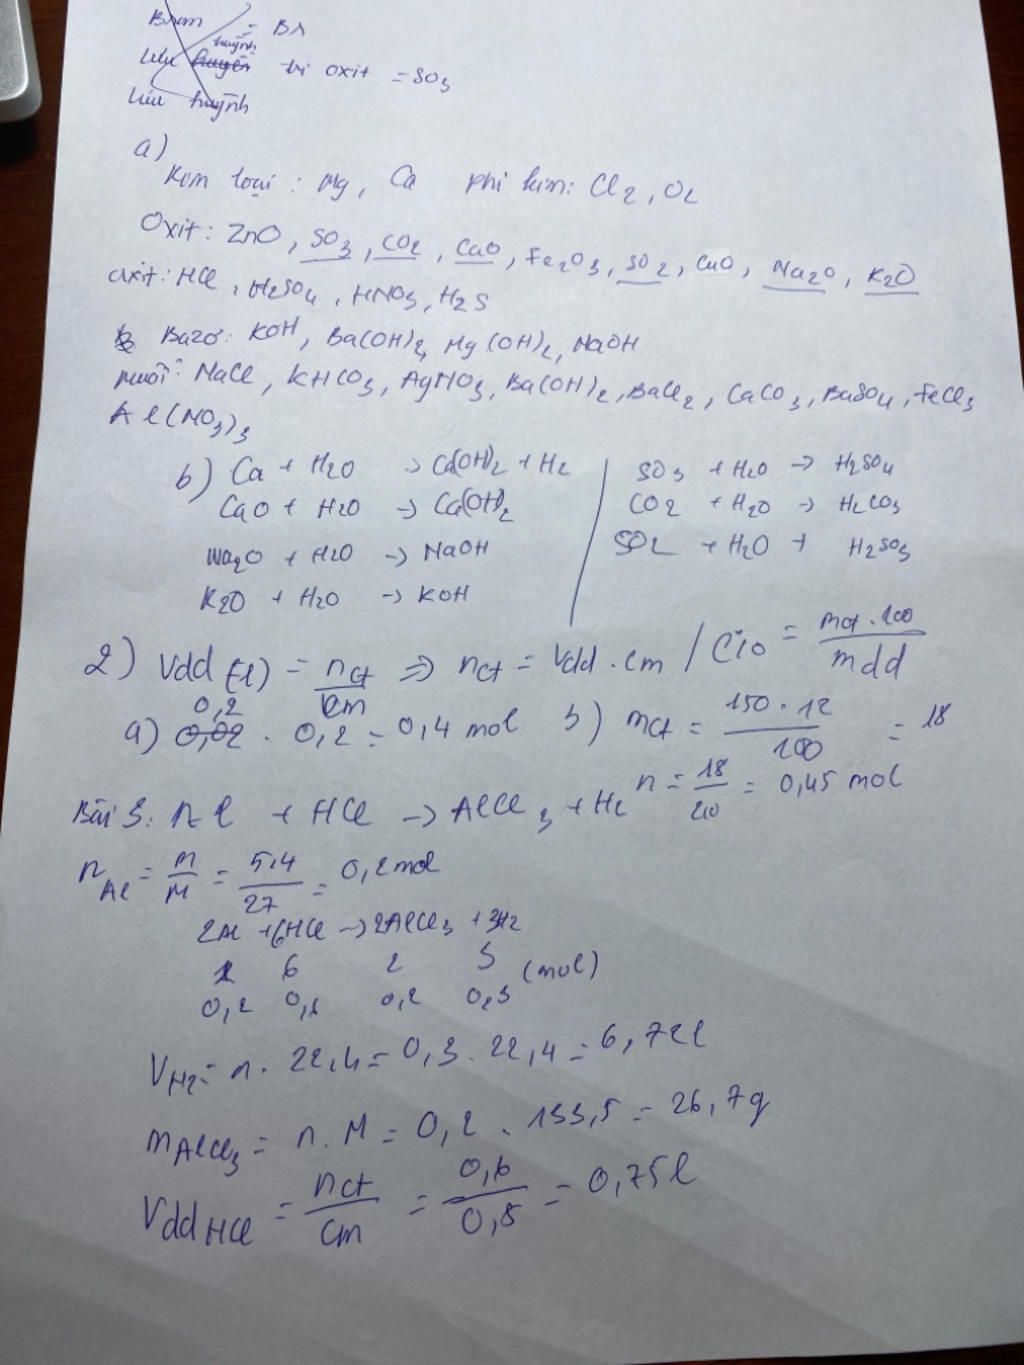 Brom = Br
huỳnh
Lưu huyên tri oxit = SO3
Lưu huỳnh
a)
Kim loại : Mg, Ca phi kim: Cl2, O2
Oxit: ZnO, SO3, CO2, CaO, Fe2O3, SO2, CuO, Na2O, K2O
axit: HCl, H2SO4, HNO3, H2S
Bazơ: KOH, Ba(OH)2, Mg(OH)2, NaOH
muối: NaCl, KHCO3, AgNO3, Ba(OH)2, BaCl2, CaCO3, BaSO4, FeCl3
Al(NO3)3
b) Ca + H2O → Ca(OH)2 + H2
CaO + H2O → Ca(OH)2
Na2O + H2O → NaOH
K2O + H2O → KOH
SO3 + H2O → H2SO4
CO2 + H2O → H2CO3
SO2 + H2O + H2SO3
2) Vdd (l) = nct / Cm ⇒ nct = Vdd . Cm / C% = mct . 100 / mdd
0,2
a) 0,02 . 0,2 = 0,4 mol b) mct = 150 . 12 / 100 = 18
n = 18 / 40 = 0,45 mol
Bài 3: Al + HCl → AlCl3 + H2
nAl = m / M = 5,4 / 27 = 0,2 mol
2Al + 6HCl → 2AlCl3 + 3H2
2 6 2 3 (mol)
0,2 0,6 0,2 0,3
VH2 = n . 22,4 = 0,3 . 22,4 = 6,72l
mAlCl3 = n . M = 0,2 . 133,5 = 26,7g
Vdd HCl = nct / Cm = 0,6 / 0,8 = 0,75l